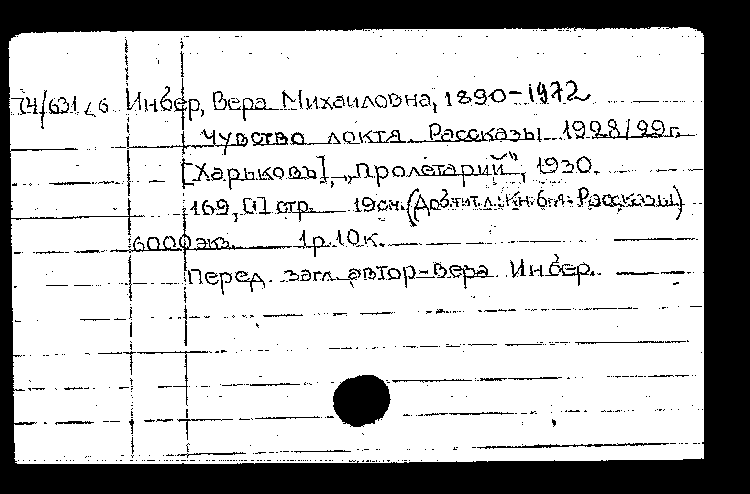 Инбер, Вера Михаиловна, 1890-1972
Чувство локтя. Рассказы 1928/29 г.
[Харьковъ], „Пролетарий", 1930.
169, [1] стр. 19 см. (До загл.: Рассказы)
6000 экз. 1 р. 10 к.
Перед загл. автор-Вера Инбер.